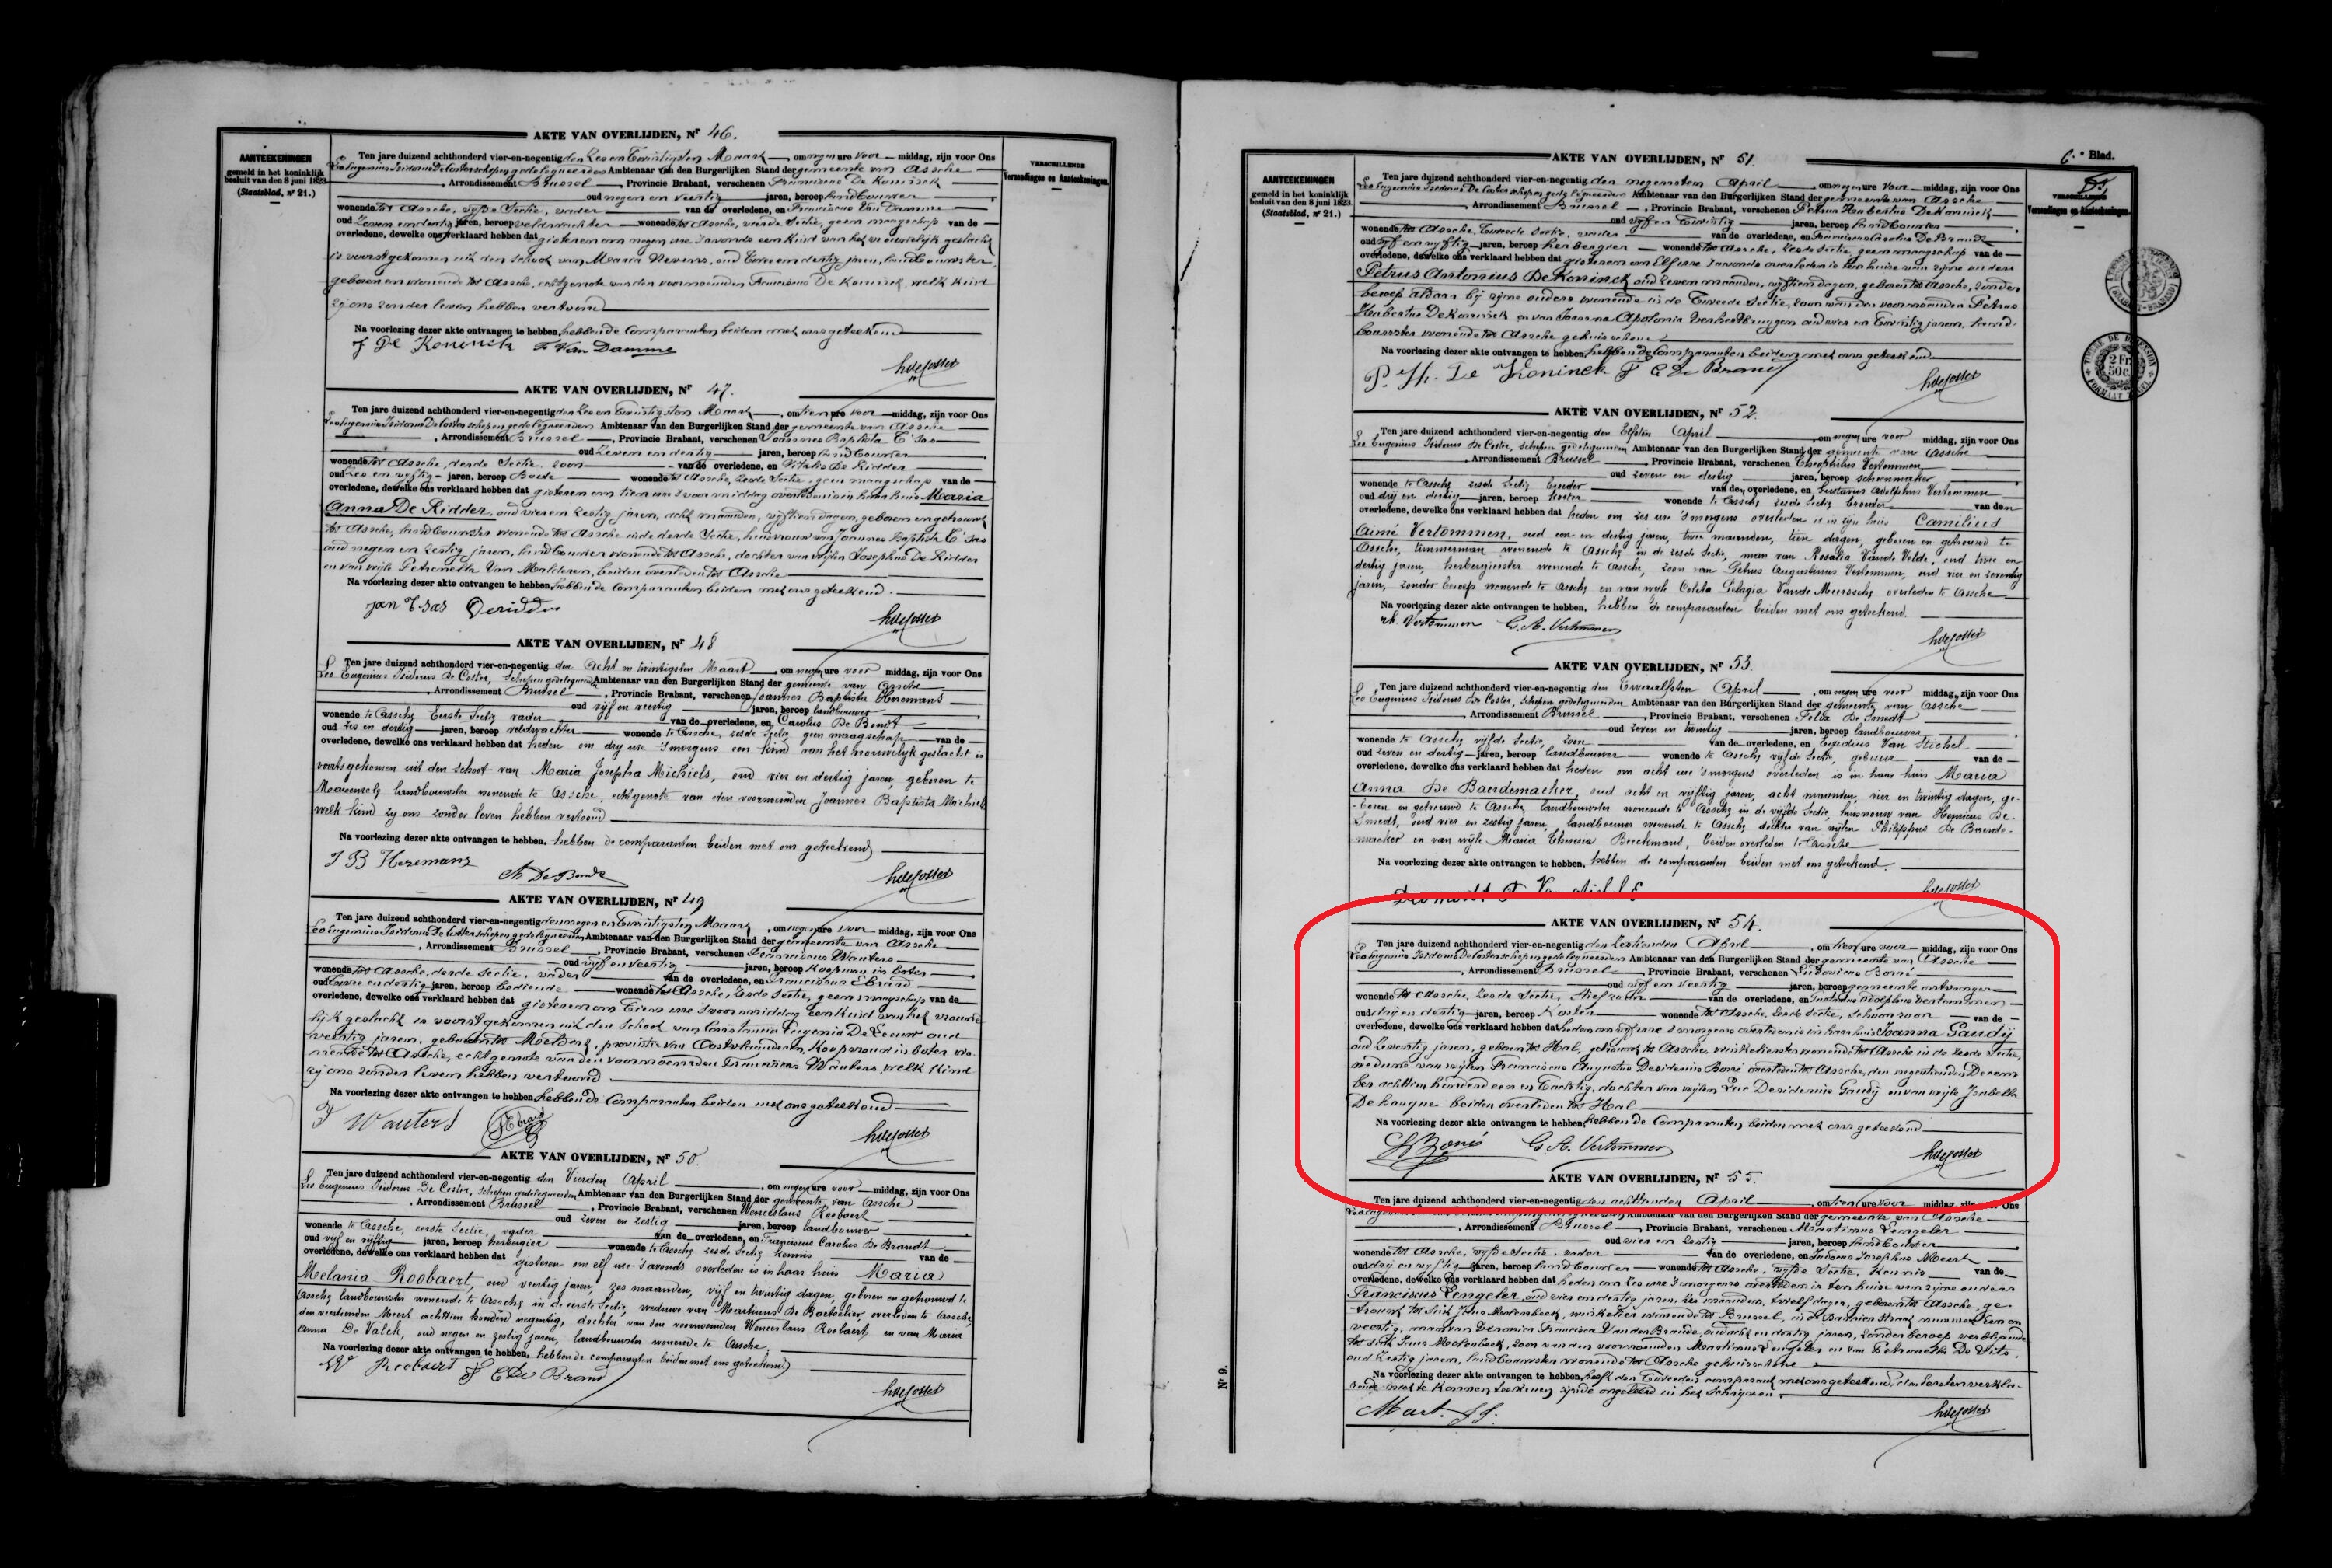 AKTE VAN OVERLIJDEN, Nr 46.
AANTEEKENINGEN
gemeld in het koninklijk
besluit van den 8 juni 1823
(Staatsblad, nº 21.)
VERSCHILLENDE
Verzendingen en Aanteekeningen.
Ten jare duizend achthonderd vier-en-negentig den Zes en Twintigsten Maart, om negen ure voor middag, zijn voor Ons
Leo Eugenius Isidorus De Coster schepen gedelegueerden Ambtenaar van den Burgerlijken Stand der gemeente van Assche
, Arrondissement Brussel, Provincie Brabant, verschenen Franciscus De Koninck
oud negen en veertig jaren, beroep landbouwer
wonende tot Assche, vyfde Sectie, vader van de overledene, en Franciscus Van Damme
oud Zeven en dertig jaren, beroep veldwachter wonende tot Assche, vierde Sectie, geen maagschap van de
overledene, dewelke ons verklaard hebben dat gisteren om negen ure 's avonds een kind van het vrouwelijk geslacht
is voortgekomen uit den schoot van Maria oud Twee en dertig jaren, landbouwster,
geboren en wonende tot Assche, echtgenote van den voornoemden Franciscus De Koninck, welk kind
zy ons zonder leven hebben vertoond
Na voorlezing dezer akte ontvangen te hebben, hebben de Comparanten beiden met ons geteekend
F De Koninck F Van Damme
AKTE VAN OVERLIJDEN, Nr 47.
Ten jare duizend achthonderd vier-en-negentig den Zes en Twintigsten Maart, om tien ure voor middag, zijn voor Ons
Leo Eugenius Isidorus De Coster schepen gedelegueerden Ambtenaar van den Burgerlijken Stand der gemeente van Assche
, Arrondissement Brussel, Provincie Brabant, verschenen Joannes Baptista T'Sas
oud Zeven en dertig jaren, beroep landbouwer
wonende tot Assche, derde Sectie, zoon van de overledene, en Vitalis De Ridder
oud Zes en vyftig jaren, beroep Bode wonende tot Assche, Zesde Sectie, geen maagschap van de
overledene, dewelke ons verklaard hebben dat gisteren om tien ure 's voormiddag overleden is in haar huis Maria
Anna De Ridder, oud vier en zestig jaren, acht maanden, vyftien dagen, geboren en getrouwd
tot Assche, landbouwster wonende tot Assche in de derde Sectie, huisvrouw van Joannes Baptista T'Sas
oud negen en zestig jaren, landbouwer wonende tot Assche, dochter van wijlen Josephus De Ridder
en van wijle Petronella Van Malderen, beiden overleden tot Assche
Na voorlezing dezer akte ontvangen te hebben, hebben de Comparanten beiden met ons geteekend.
Jan T'Sas Deridder
AKTE VAN OVERLIJDEN, Nr 48
Ten jare duizend achthonderd vier-en-negentig den Acht en twintigsten Maart, om negen ure voor middag, zijn voor Ons
Leo Eugenius Isidorus De Coster, schepen gedelegueerden Ambtenaar van den Burgerlijken Stand der gemeente van Assche
, Arrondissement Brussel, Provincie Brabant, verschenen Joannes Baptista Heremans
oud vijf en veertig jaren, beroep landbouwer
wonende te Assche, Eerste Sectie, vader van de overledene, en Carolus De Bondt
oud zes en dertig jaren, beroep veldwachter wonende te Assche, zesde Sectie, geen maagschap van de
overledene, dewelke ons verklaard hebben dat heden om dry ure 's morgens een kind van het vrouwelyk geslacht is
voortsgekomen uit den schoot van Maria Josepha Michiels, oud vier en dertig jaren, geboren te
landbouwster wonende te Assche, echtgenote van den voornoemden Joannes Baptista Michiels
welk kind zy ons zonder leven hebben vertoond
Na voorlezing dezer akte ontvangen te hebben, hebben de comparanten beiden met ons geteekend
J B Heremans
AKTE VAN OVERLIJDEN, Nr 49
Ten jare duizend achthonderd vier-en-negentig den negen en Twintigsten Maart, om negen ure voor middag, zijn voor Ons
Leo Eugenius Isidorus De Coster schepen gedelegueerden Ambtenaar van den Burgerlijken Stand der gemeente van Assche
, Arrondissement Brussel, Provincie Brabant, verschenen Franciscus Wauters
oud vijf en veertig jaren, beroep koopman in boter
wonende tot Assche, derde Sectie, vader van de overledene, en Franciscus Ebrard
oud Twee en dertig jaren, beroep bediende wonende tot Assche, Zesde Sectie, geen maagschap van de
overledene, dewelke ons verklaard hebben dat gisteren om Tien ure 's voormiddag een kind van het vrouwe-
lijk geslacht is voortgekomen uit den schoot van Constantia Eugenia De Leeuw oud
veertig jaren, geboren tot Meldert, provintie van Oostvlaanderen, koopvrouw in boter wo-
nende tot Assche, echtgenote van den voornoemden Franciscus Wauters, welk kind
zy ons zonder leven hebben vertoond
Na voorlezing dezer akte ontvangen te hebben, hebben de Comparanten beiden met ons geteekend
F Wauters Ebrard
AKTE VAN OVERLIJDEN, Nr 50.
Ten jare duizend achthonderd vier-en-negentig den Vierden April, om negen ure voor middag, zijn voor Ons
Leo Eugenius Isidorus De Coster, schepen gedelegueerden Ambtenaar van den Burgerlijken Stand der gemeente van Assche
, Arrondissement Brussel, Provincie Brabant, verschenen Wenceslaus Roobaert
oud zeven en zestig jaren, beroep landbouwer
wonende te Assche, eerste Sectie, vader van de overledene, en Franciscus Carolus De Brandt
oud vijf en vijftig jaren, beroep herbergier wonende te Assche, zesde Sectie, kennis van de
overledene, dewelke ons verklaard hebben dat gisteren om elf ure 's avonds overleden is in haar huis Maria
Melania Roobaert, oud veertig jaren, zes maanden, vijf en twintig dagen, geboren en getrouwd te
Assche, landbouwster wonende te Assche in de eerste Sectie, weduwe van Martinus De Backelier, overleden te Assche,
den veertienden Meert achttien honderd negentig, dochter van den voornoemden Wenceslaus Roobaert, en van Maria
Anna De Valck, oud negen en zestig jaren, landbouwster wonende te Assche.
Na voorlezing dezer akte ontvangen te hebben, hebben de comparanten beiden met ons geteekend
Roobaert F C De Brand
AKTE VAN OVERLIJDEN, Nr 51.
6e Blad.
AANTEEKENINGEN
gemeld in het koninklijk
besluit van den 8 juni 1823.
(Staatsblad, nº 21.)
VERSCHILLENDE
Verzendingen en Aanteekeningen.
Ten jare duizend achthonderd vier-en-negentig den negensten April, om negen ure voor middag, zijn voor Ons
Leo Eugenius Isidorus De Coster schepen gedelegueerden Ambtenaar van den Burgerlijken Stand der gemeente van Assche
, Arrondissement Brussel, Provincie Brabant, verschenen Petrus Hubertus De Koninck
oud vyf en Twintig jaren, beroep landbouwer
wonende tot Assche, Tweede Sectie, vader van de overledene, en Franciscus Carolus De Brandt
oud vyf en vyftig jaren, beroep herbergier wonende tot Assche, Zesde Sectie, geen maagschap van de
overledene, dewelke ons verklaard hebben dat gisteren om Elf ure 's avonds overleden is ten huize van zijne ouders
Petrus Antonius De Koninck oud zeven maanden, vyftien dagen, geboren tot Assche, zonder
beroep aldaar bij zijne ouders wonende in de Tweede Sectie, zoon van den voornoemden Petrus
Hubertus De Koninck en van Joanna Apolonia Verhertbruggen oud vier en Twintig jaren, land-
bouwster wonende tot Assche gehuisschen
Na voorlezing dezer akte ontvangen te hebben, hebben de Comparanten beiden met ons geteekend
P. H. De Koninck F C De Brand
2 Fr
50 c.
AKTE VAN OVERLIJDEN, Nr 52.
Ten jare duizend achthonderd vier-en-negentig den Elfsten April, om negen ure voor middag, zijn voor Ons
Leo Eugenius Isidorus De Coster, schepen gedelegueerden Ambtenaar van den Burgerlijken Stand der gemeente van Assche
, Arrondissement Brussel, Provincie Brabant, verschenen Theophilus Vertommen
oud zeven en dertig jaren, beroep schoenmaker
wonende te Assche, zesde Sectie, broeder van den overledene, en Gustavus Adolphus Vertommen
oud drij en dertig jaren, beroep koster wonende te Assche, zesde Sectie, broeder van den
overledene, dewelke ons verklaard hebben dat heden om zes ure 's morgens overleden is in zijn huis Camilius
Aimé Vertommen, oud een en dertig jaren, twee maanden, tien dagen, geboren en getrouwd te
Assche, timmerman wonende te Assche in de zesde Sectie, man van Rosalia Vande Velde, oud twee en
dertig jaren, herbergierster wonende te Assche, zoon van Petrus Augustinus Vertommen, oud vier en zeventig
jaren, zonder beroep wonende te Assche en van wijle Coleta Pelagia Vande Meerssche overleden te Assche
Na voorlezing dezer akte ontvangen te hebben, hebben de comparanten beiden met ons geteekend.
Th. Vertommen G. A. Vertommen
AKTE VAN OVERLIJDEN, Nr 53.
Ten jare duizend achthonderd vier-en-negentig den Tweealfsten April, om negen ure voor middag, zijn voor Ons
Leo Eugenius Isidorus De Coster, schepen gedelegueerden Ambtenaar van den Burgerlijken Stand der gemeente van Assche
, Arrondissement Brussel, Provincie Brabant, verschenen Felix De Smedt
oud zeven en twintig jaren, beroep landbouwer
wonende te Assche vijfde Sectie, zoon van de overledene, en Egidius Van Stichel
oud zeven en dertig jaren, beroep landbouwer wonende te Assche vijfde Sectie, gebuur van de
overledene, dewelke ons verklaard hebben dat heden om acht ure 's morgens overleden is in haar huis Maria
Anna De Baerdemaeker, oud acht en vijftig jaren, acht maanden, vier en twintig dagen, ge-
boren en getrouwd te Assche, landbouwster wonende te Assche in de vijfde Sectie, huisvrouw van Henricus De
Smedt, oud vier en zestig jaren, landbouwer wonende te Assche dochter van wijlen Philippus De Baerde-
maeker en van wijle Maria Theresia Beeckmans, beiden overleden te Assche
Na voorlezing dezer akte ontvangen te hebben, hebben de comparanten beiden met ons geteekend.
AKTE VAN OVERLIJDEN, Nr 54.
Ten jare duizend achthonderd vier-en-negentig den Zestienden April, om tien ure voor middag, zijn voor Ons
Leo Eugenius Isidorus De Coster schepen gedelegueerden Ambtenaar van den Burgerlijken Stand der gemeente van Assche
, Arrondissement Brussel, Provincie Brabant, verschenen Ludovicus Borré
oud vijf en veertig jaren, beroep gemeente ontvanger
wonende tot Assche, Zesde Sectie, Stiefzoon van de overledene, en Gustavus Adolphus Vertommen
oud drij en dertig jaren, beroep Koster wonende tot Assche, Zesde Sectie, Schoonzoon van de
overledene, dewelke ons verklaard hebben dat heden om vyf ure 's morgens overleden is in haar huis Joanna Gaudy
oud Zeventig jaren, geboren tot Hal, getrouwd tot Assche, winkelierster wonende tot Assche in de Zesde Sectie,
weduwe van wijlen Franciscus Augustus Desiderius Borré overleden tot Assche, den negentienden Decem
ber achttien honderd een en Tachtig, dochter van wijlen Luc Desiderius Gaudy en van wijle Isabella
beiden overleden tot Hal
Na voorlezing dezer akte ontvangen te hebben, hebben de Comparanten beiden met ons geteekend
L Borré G. A. Vertommen
AKTE VAN OVERLIJDEN, Nr 55.
Ten jare duizend achthonderd vier-en-negentig den achttienden April, om tien ure voor middag, zijn voor Ons
Leo Eugenius Ambtenaar van den Burgerlijken Stand der gemeente van Assche
, Arrondissement Brussel, Provincie Brabant, verschenen Martinus Lengeler
oud vier en Zestig jaren, beroep landbouwer
wonende tot Assche, vyfde Sectie, vader van de overledene, en Judocus Josephus Meert
oud drij en vyftig jaren, beroep landbouwer wonende tot Assche, vyfde Sectie, kennis van de
overledene, dewelke ons verklaard hebben dat heden om Zes ure 's morgens overleden is ten huize van zijne ouders
Franciscus Lengeler, oud vier en dertig jaren, Zes maanden, twaelf dagen, geboren tot Assche, ge-
trouwd tot Sint Jans Molenbeek, winkelier wonende tot Brussel, in de straat nummer Een en
veertig, man van Veronica Francisca Van den Brande, oud acht en dertig jaren, zonder beroep verblijvende
tot Sint Jans Molenbeek, zoon van den voornoemden Martinus Lengeler en van Petronella De Smet,
oud Zestig jaren, landbouwster wonende tot Assche gehuisschen
Na voorlezing dezer akte ontvangen te hebben, heeft den Tweeden comparant met ons geteekend, den Eersten verkla-
rende niet te kunnen teekenen zijnde ongeleerd in het schrijven.
Meert. J J.
Nº 9.